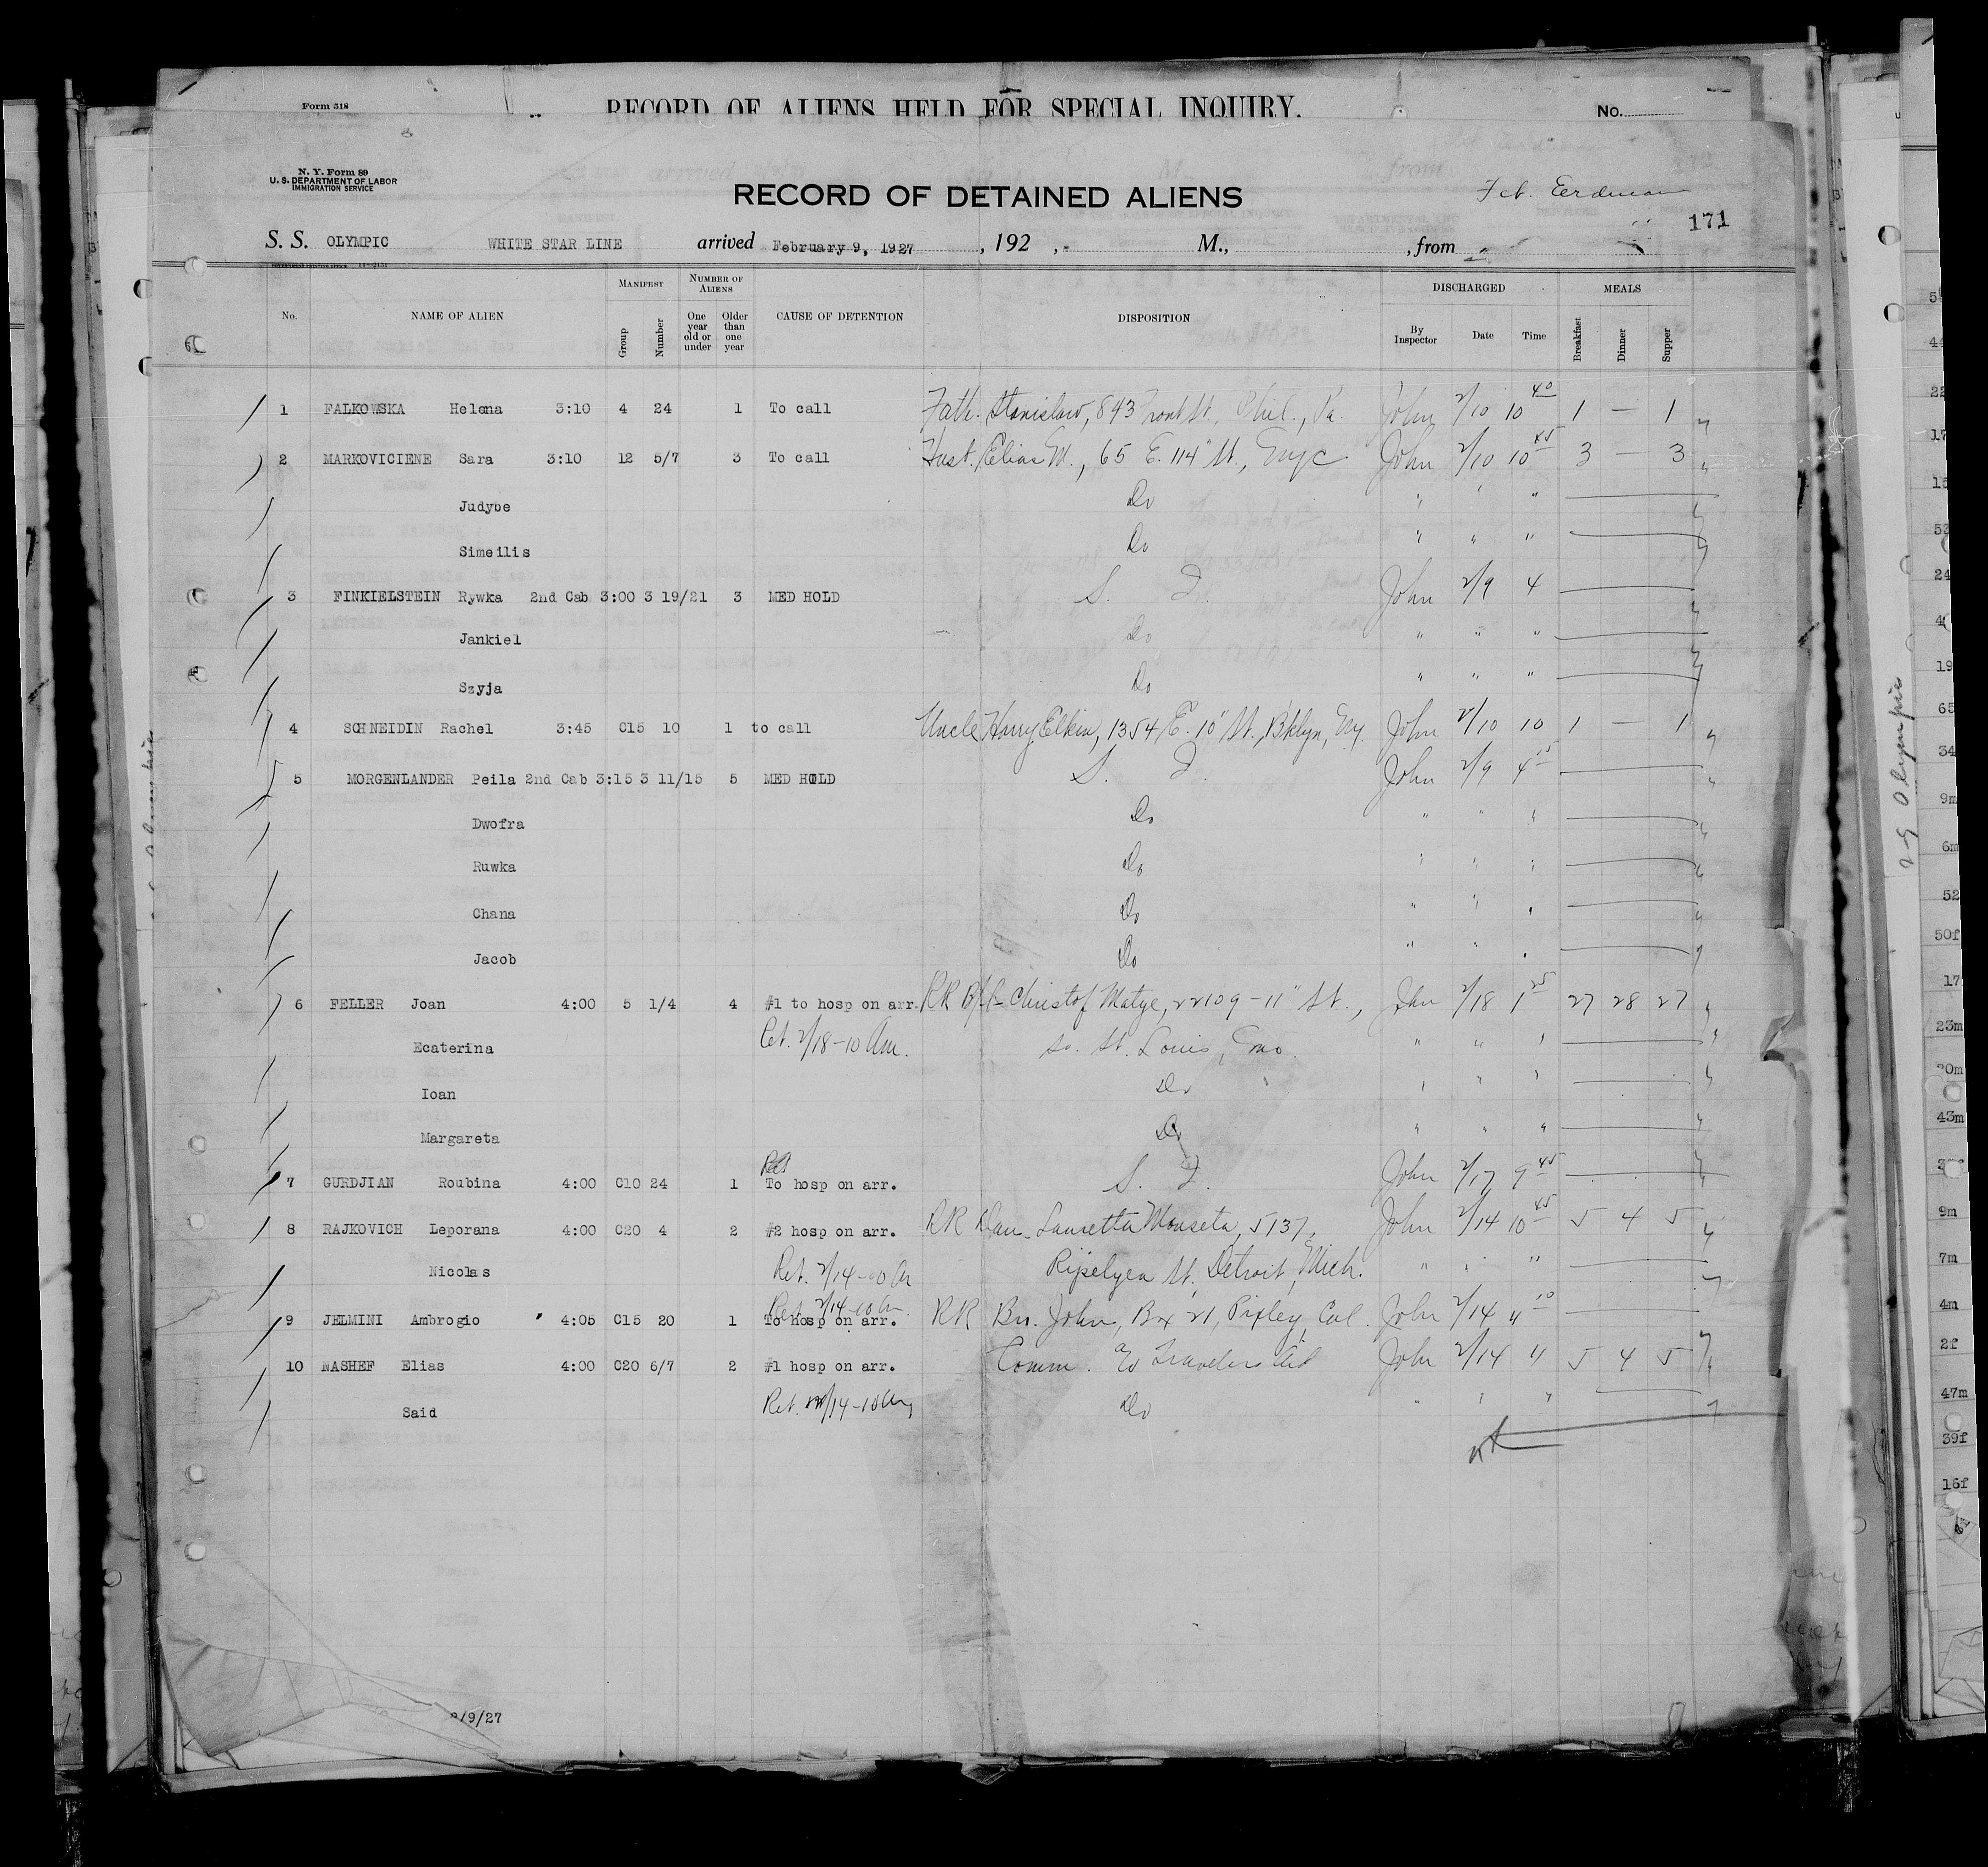 Form 518
RECORD OF ALIENS HELD FOR SPECIAL INQUIRY.
No.
N. Y. Form 89
U. S. DEPARTMENT OF LABOR
IMMIGRATION SERVICE
RECORD OF DETAINED ALIENS
Feb. Eerdman
171
S. S. OLYMPIC WHITE STAR LINE arrived February 9, 1927, 192 , M., , from
No. NAME OF ALIEN MANIFEST Group Number NUMBER OF ALIENS One year old or under Older than one year CAUSE OF DETENTION DISPOSITION DISCHARGED By Inspector Date Time MEALS Breakfast Dinner Supper
1 FALKOWSKA Helena 3:10 4 24 1 To call Fath. Stanislaw, 843 Front St., Phil., Pa. John 2/10 10 40 1 — 1
2 MARKOVICIENE Sara 3:10 12 5/7 3 To call Husb. Elias M., 65 E. 114" St., Nyc John 2/10 10 45 3 — 3
Judybe Do " " "
Simeilis Do " " "
3 FINKIELSTEIN Rywka 2nd Cab 3:00 3 19/21 3 MED HOLD S. I. John 2/9 4
Jankiel Do " " "
Szyja Do " " "
4 SCHNEIDIN Rachel 3:45 C15 10 1 to call Uncle Harry Elkin, 1354 E. 10" St., Bklyn, Ny. John 2/10 10 1 — 1
5 MORGENLANDER Peila 2nd Cab 3:15 3 11/15 5 MED HOLD S. I. John 2/9 4 15
Dwofra Do " " "
Ruwka Do " " "
Chana Do " " "
Jacob Do " " "
6 FELLER Joan 4:00 5 1/4 4 #1 to hosp on arr. RR B/l- Christof Matye, 22109-11" St., John 2/18 1 25 27 28 27
Ecaterina Ret. 2/18-10 Am. So. St. Louis, Mo. " " "
Ioan Do " " "
Margareta Do " " "
7 GURDJIAN Roubina 4:00 C10 24 1 To hosp on arr. S. I. John 2/17 9 45
8 RAJKOVICH Leporana 4:00 C20 4 2 #2 hosp on arr. RR Dau. Lauretta Mouseta, 5137, John 2/14 10 45 5 4 5
Nicolas Ret. 2/14-10 Am Ripelyea St. Detroit, Mich. " " "
Ret. 2/14-10 Am.
9 JELMINI Ambrogio 4:05 C15 20 1 To hosp on arr. RR Bro. John, Box 21, Pixley, Cal. John 2/14 11 10
10 NASHEF Elias 4:00 C20 6/7 2 #1 hosp on arr. Comm. to Travelers Aid John 2/14 11 5 4 5
Said Ret. 2/14-10 Am Do " " "
2/9/27